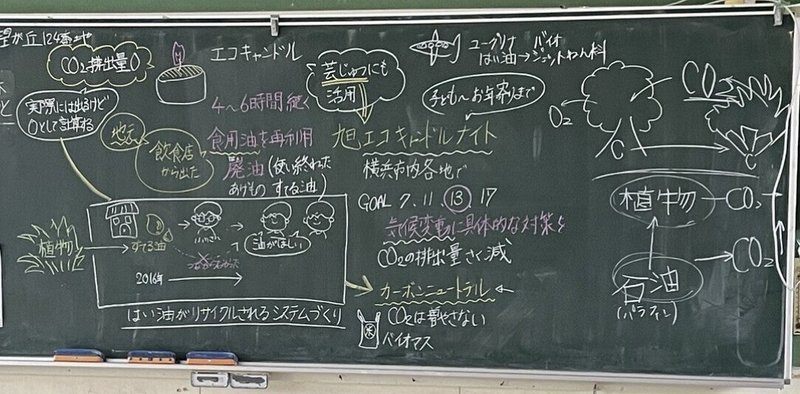 望が丘
CO₂排出量0
実際には出るけど
0として計算する
エコキャンドル
4〜6時間続く
食用油を再利用
廃油(使い終わった
あげもの すてる油)
地元
飲食店
から出た
植物
すてる油
油がほしい
2016年
はい油がリサイクルされるシステムづくり
芸じゅつにも
活用
ユーグレナ バイオ
はい油→ジェットねん料
子ども〜お年寄りまで
旭エコキャンドルナイト
横浜市内各地で
GOAL 7. 11 13 17
気候変動に具体的な対策を
CO₂の排出量さく減
カーボンニュートラル
CO₂は増やさない
バイオマス
CO₂
O₂
C
C
植物
CO₂
石油
(パラフィン)
CO₂